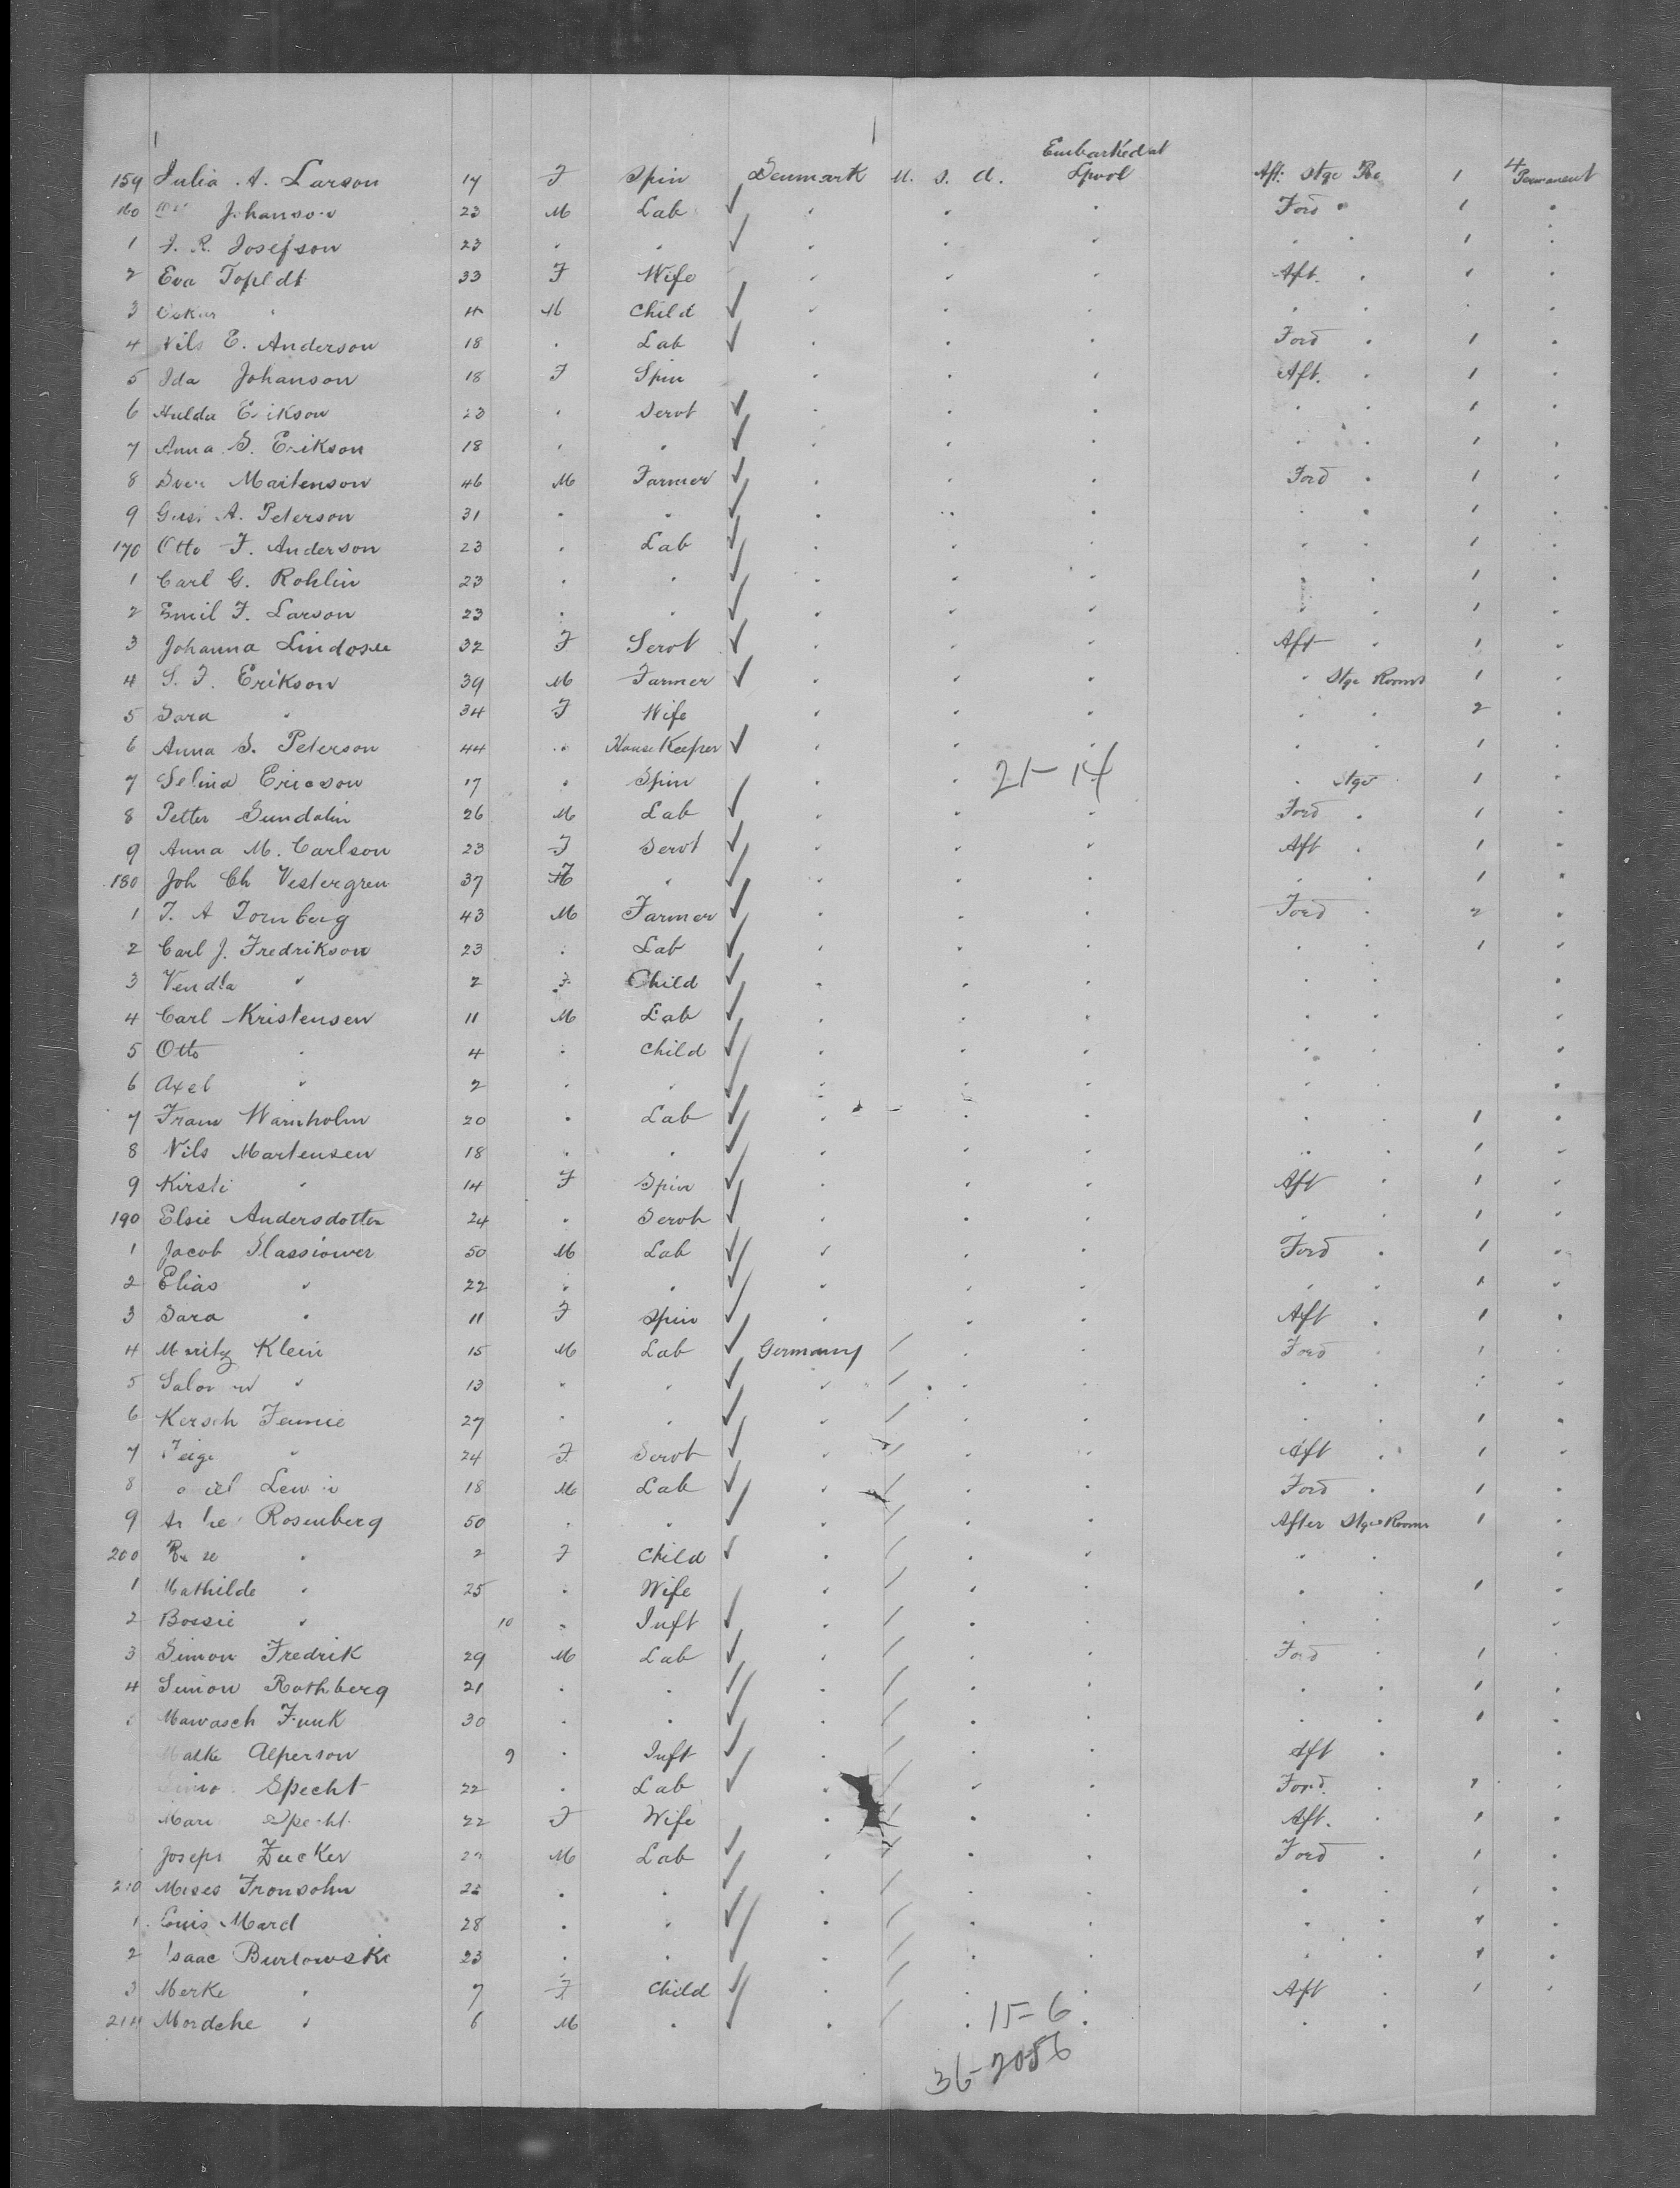 Embarked at
159 Julia A. Larson 17 F Spin Denmark U. S. A. Lpool Aft. Stge 1 4 Permanent
160 Johanson 23 M Lab ✓ " " " Ford " 1 "
1 J. R. Josefson 23 " " ✓ " " " " " 1 "
2 Eva 33 F Wife " " " Aft. " 1 "
3 Oskar " 4 M Child ✓ " " " " " "
4 Nils E. Anderson 18 " Lab ✓ " " " Ford " 1 "
5 Ida Johanson 18 F Spin " " " Aft. " 1 "
6 Hulda Erikson 23 " Servt ✓ " " " " " 1 "
7 Anna S. Erikson 18 " " ✓ " " " " " 1 "
8 Sven Martenson 46 M Farmer ✓ " " " Ford " 1 "
9 Gust A. Peterson 31 " " ✓ " " " " " 1 "
170 Otto F. Anderson 23 " Lab ✓ " " " " " 1 "
1 Carl G. Rohlin 23 " " ✓ " " " " " 1 "
2 Emil F. Larson 23 " " ✓ " " " " " 1 "
3 Johanna 32 F Servt ✓ " " " Aft " 1 "
4 S. F. Erikson 39 M Farmer ✓ " " " " Stge Rooms 1 "
5 Sara " 34 F Wife " " " " " 2 "
6 Anna S. Peterson 44 " House Keeper ✓ " " " " " 1 "
7 Selina Ericson 17 " Spin " " 21-14 " Stge 1 "
8 Petter Sundalin 26 M Lab ✓ " " " Ford " 1 "
9 Anna M. Carlson 23 F Servt ✓ " " " Aft " 1 "
180 Joh Ch Vestergren 37 F " ✓ " " " " " 1 "
1 J. A Tornberg 43 M Farmer ✓ " " " Ford " 2 "
2 Carl J. Fredrikson 23 " Lab ✓ " " " " " 1 "
3 Vendla " 2 F Child ✓ " " " " " "
4 Carl Kristensen 11 M Lab ✓ " " " " " "
5 Otto " 4 " Child ✓ " " " " " "
6 Axel " 2 " " ✓ " " " " " "
7 Frans Warnholm 20 " Lab ✓ " " " " " 1 "
8 Nils Martensen 18 " " ✓ " " " " " 1 "
9 Kirsti " 14 F Spin ✓ " " " Aft " 1 "
190 Elsie Andersdotter 24 " Servt ✓ " " " " " 1 "
1 Jacob 50 M Lab ✓ " " " Ford " 1 "
2 Elias " 22 " " ✓ " " " " " 1 "
3 Sara " 11 F Spin ✓ " " " Aft " 1 "
4 Moritz Klein 15 M Lab ✓ Germany / " " Ford " 1 "
5 " 13 " " ✓ " / " " " " "
6 Kersch Fennie 27 " " ✓ " / " " " " 1 "
7 Feige " 24 F Servt ✓ " / " " Aft " 1 "
8 18 M Lab ✓ " / " " Ford " 1 "
9 Rosenberg 50 " " ✓ " / " " After Stge Rooms 1 "
200 " 2 F Child ✓ " / " " " " "
1 Mathilde " 25 " Wife " / " " " " 1 "
2 Bossie " 10 " Inft ✓ " / " " " " "
3 Simon Fredrik 29 M Lab ✓ " / " " Ford " 1 "
4 Simon Rothberg 21 " " ✓ " / " " " " 1 "
5 Mawasch Funk 30 " " ✓ " / " " " " 1 "
Malke Alperson 9 " Inft ✓ " / " " Aft " "
Specht 22 " Lab ✓ " / " " Ford. " 1 "
Mari Specht 22 F Wife " / " " Aft. " 1 "
Joseph Zucker M Lab ✓ " / " " Ford " 1 "
210 Moses Fronsohn 22 " " ✓ " / " " " " 1 "
1 Louis Mard 28 " " ✓ " / " " " " 1 "
2 Isaac Burlowski 23 " " ✓ " / " " " " 1 "
3 Merke " 7 F Child ✓ " / " " Aft " 1 "
214 Mordche " 6 M " ✓ " / " 15-6 " "
36-20-56